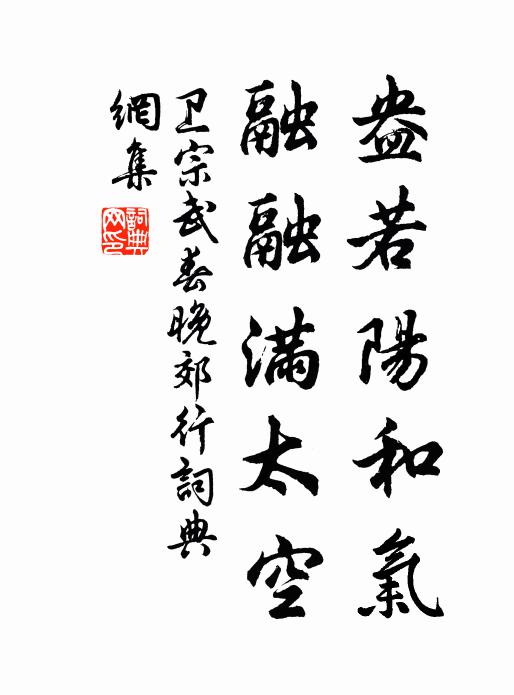 盎若陽和氣
融融滿太空
卫宗武春晚郊行詞典
網集
詞典
网印